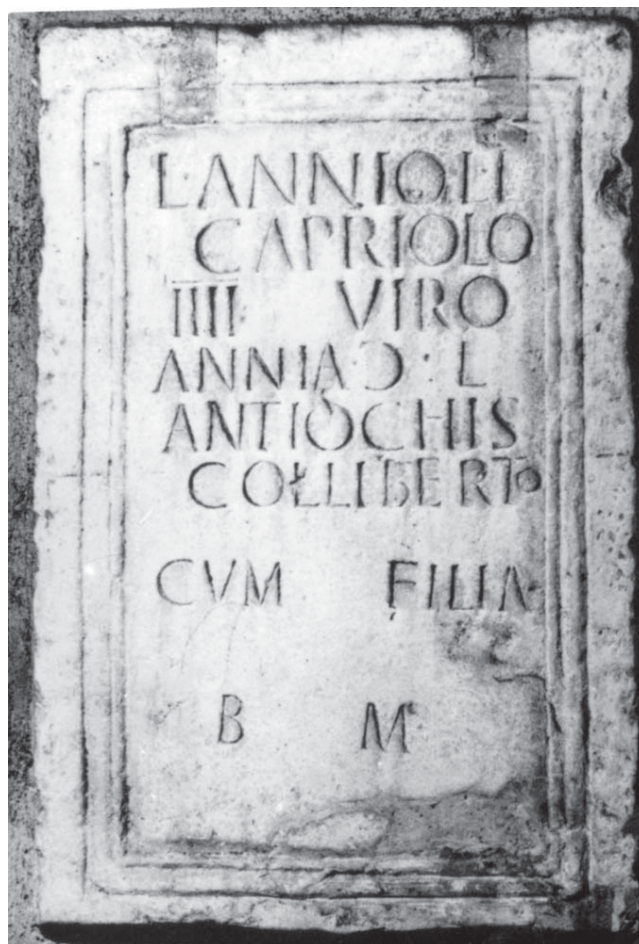 L·ANNIO LI
CAPRIOLO
IIII VIRO
ANNIA Ɔ · L
ANTIOCHIS
COLLIBERTO
CVM FILIA
B M